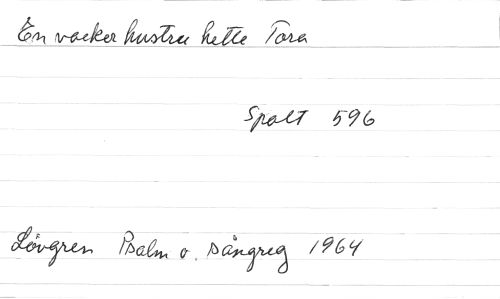 En vacker hustru hette Tora
Spalt 596
Lövgren Psalm o. sångreg 1964